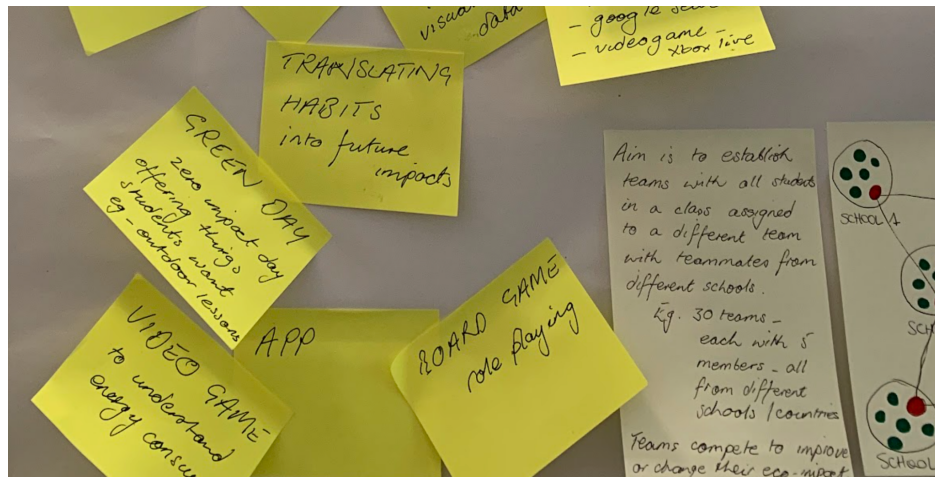 visual
data
- google
- videogame -
xbox live
TRANSLATING
HABITS
into future
impacts
GREEN DAY
zero impact day
offering things
students want
eg - outdoor lessons
VIDEO GAME
to understand
energy
APP
BOARD GAME
role playing
Aim is to establish
teams with all students
in a class assigned
to a different team
with teammates from
different schools.
Eg. 30 teams -
each with 5
members - all
from different
schools / countries
Teams compete to improve
or change their eco-impact
SCHOOL 1
SCHOOL